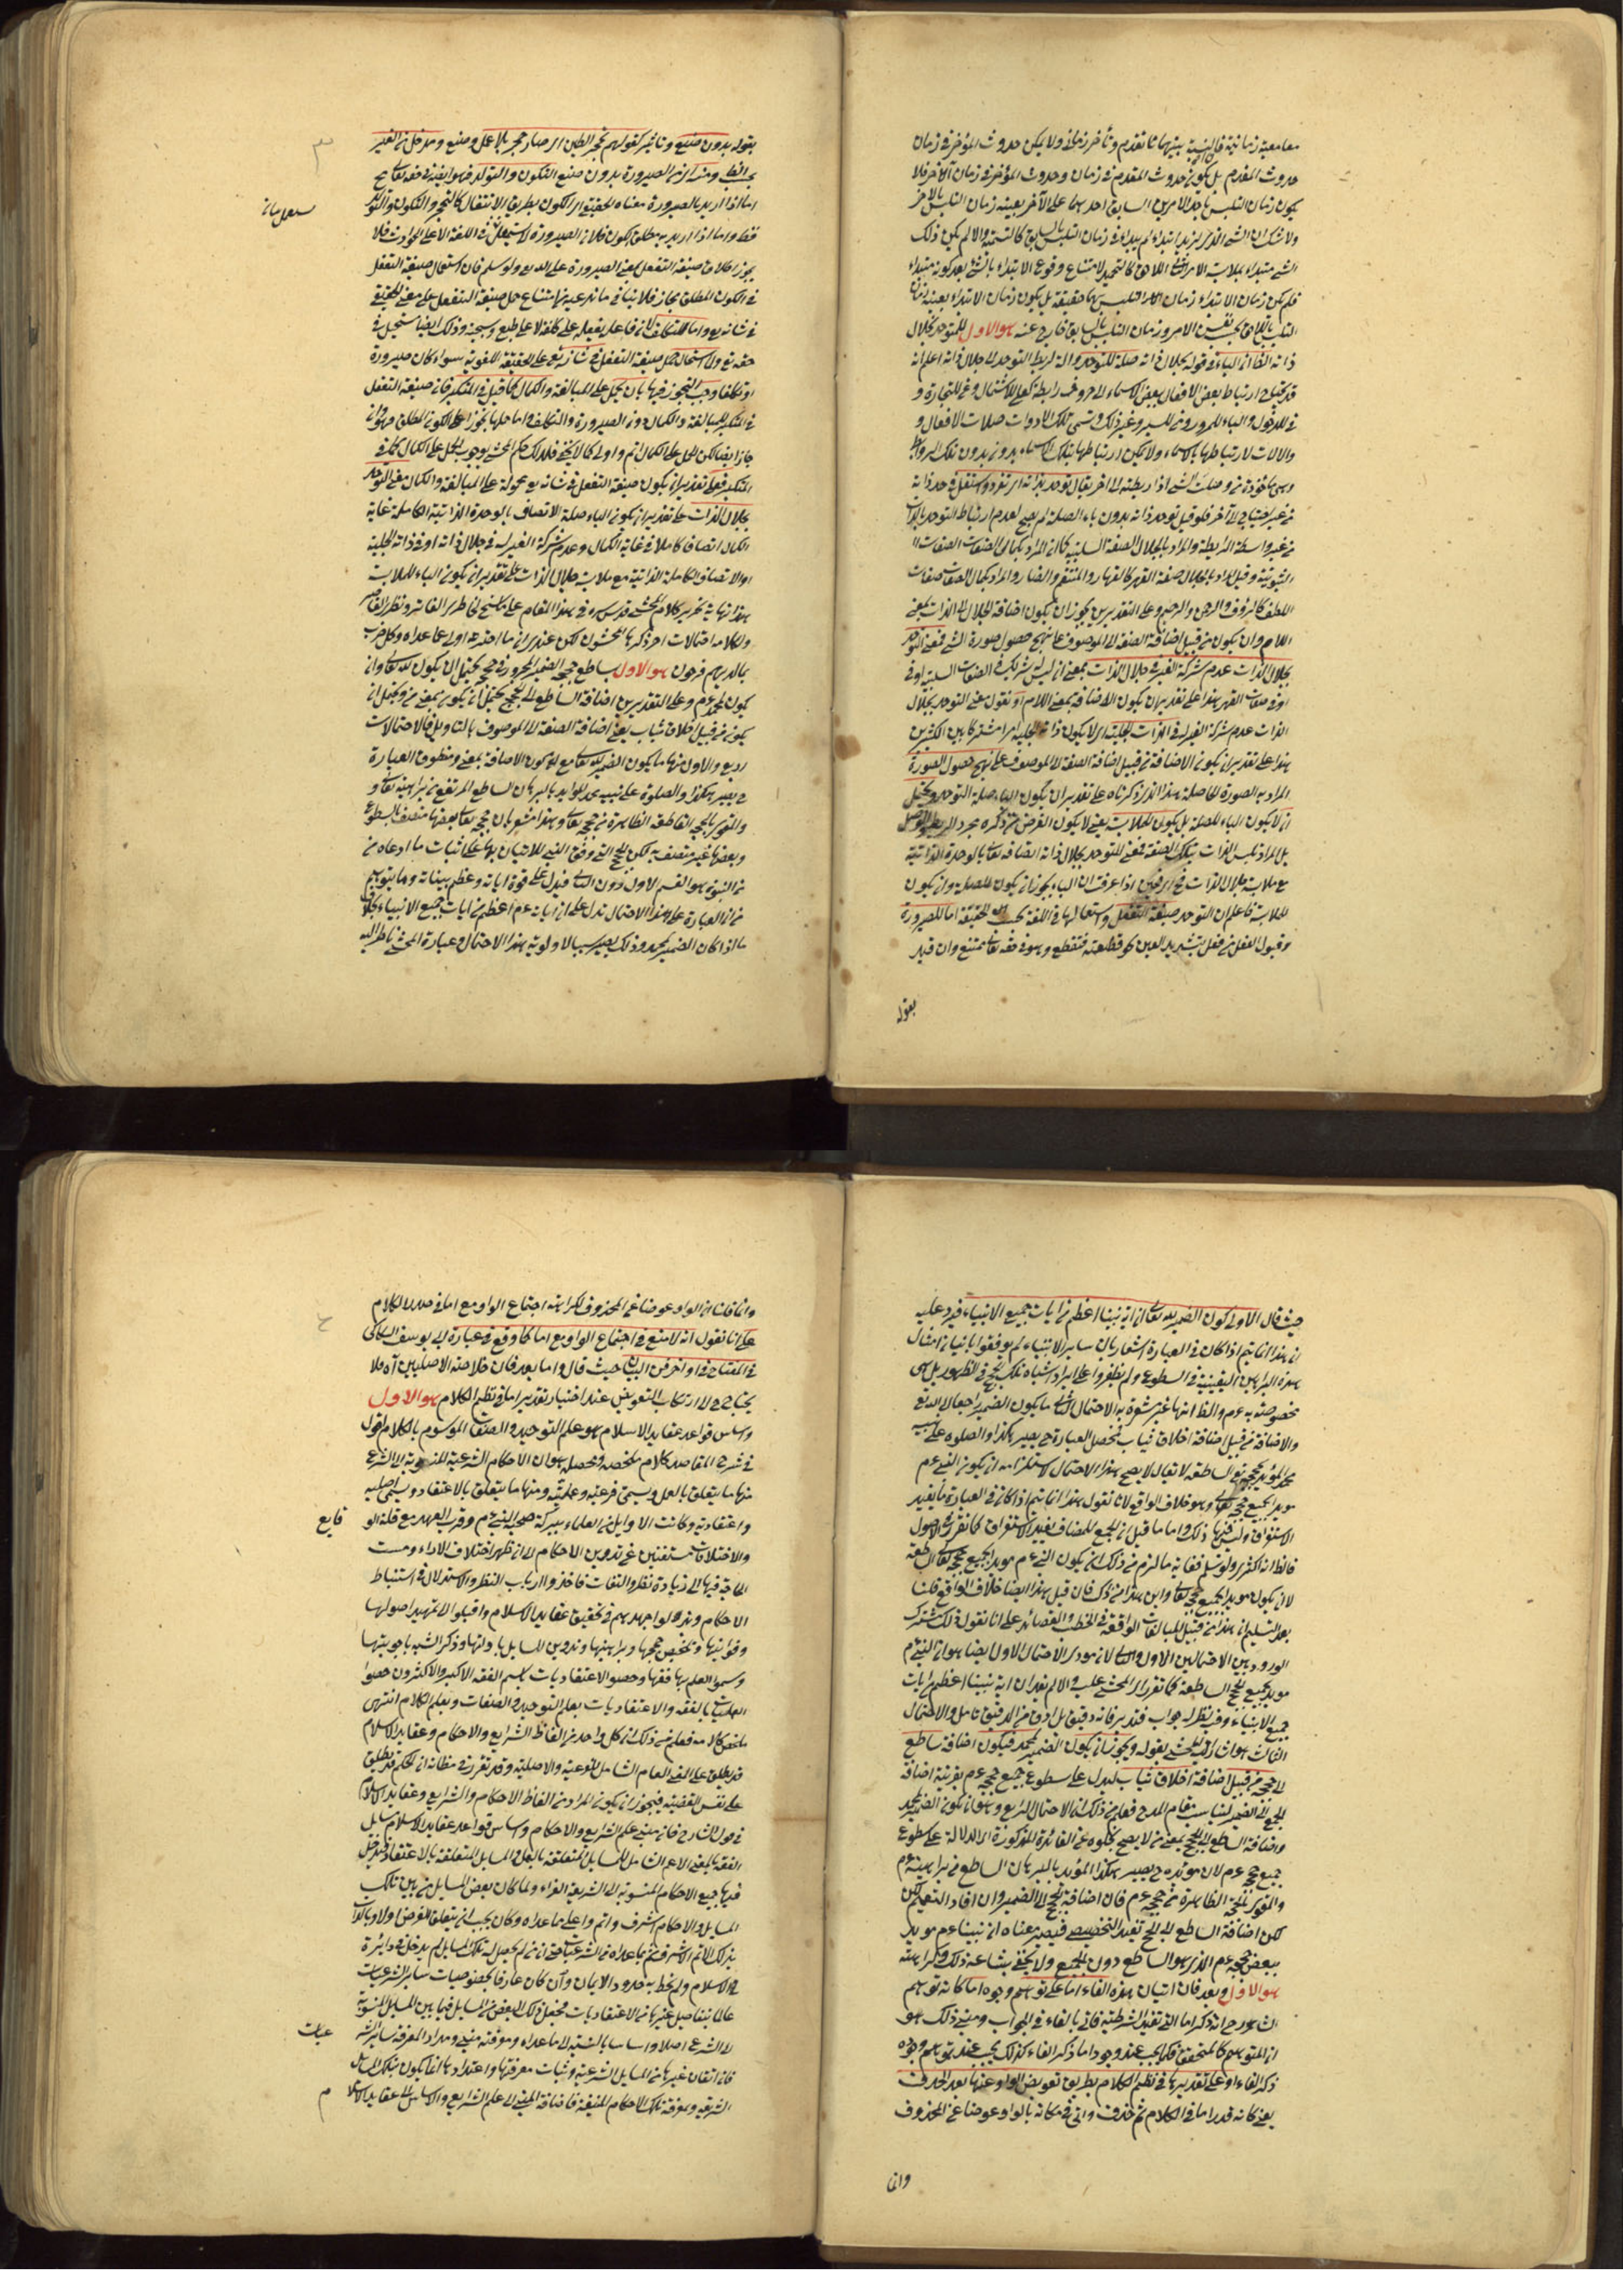 معا معية زمانية فالنسبة بينهما تقدم وتأخر زماني ولا يمكن حدوث المؤخر في زمان
حدوث المقدم بل يكون حدوث المقدم في زمان وحدوث المؤخر في زمان آخر فلا
يكون زمان التلبس باحد الامرين السابق احدهما على الآخر بعينه زمان التلبس بالآخر
ولا شك ان الشئ الذي
الشئ مبتداء بملابسة الامر اللاحق كالتحميد لامتناع وقوع الابتداء بالشئ بعد كونه مبتداء
فلم يكن زمان الابتداء زمان التلبس بهما حقيقة بل يكون زمان الابتداء بعينه زمان
التلبس باللاحق بحسب نفس الامر وزمان التلبس بالسابق خارج عنه هو الاول المتوحد بجلال
ذاته الظ ان الباء في قوله بجلال ذاته صلة للمتوحد وآلة لربط التوحد الى جلال ذاته اعلم انه
قد يحتاج ارتباط بعض الافعال ببعض الاسماء الى حروف رابطة كعلى للاشتمال وعن للتجاوز و
في للدخول والباء للمرور ومن للسير وغير ذلك وتسمى تلك الادوات صلات الافعال و
والآلات لارتباطها بالاسماء ولا يمكن ارتباطها بتلك الاسماء بدون تلك الروابط
وهي مأخوذة من وصلت الشئ اذا ربطته الى آخر يقال توحد بذاته اي تفرد واستقل في حد ذاته
من غير احتياج الى آخر فلو قيل توحد ذاته بدون باء الصلة لم يصح لعدم ارتباط التوحد بالذات
من غير واسطة الرابطة والمراد بالجلال الصفة السلبية كما ان المراد بكمال الصفات الصفات
الثبوتية وقيل المراد بالجلال صفة القهر كالقهار والمنتقم والضار والمراد بكمال الصفات صفات
اللطف كالرؤف والرحمن والرحيم وعلى التقديرين يجوز ان يكون اضافة الجلال الى الذات بمعنى
اللام وان يكون من قبيل اضافة الصفة الى الموصوف على نهج حصول صورة الشئ فمعنى التوحد
بجلال الذات عدم شركة الغير في جلال الذات بمعنى ان ليس له شريك في الصفات السلبية او في
او في صفات القهر هذا على تقدير ان يكون الاضافة بمعنى اللام او نقول معنى التوحد بجلال
الذات عدم شركة الغير له في الذات الجليلة اي لا يكون ذاته الجليلة امرا مشتركا بين الكثيرين
هذا على تقدير ان يكون الاضافة من قبيل اضافة الصفة الى الموصوف على نهج حصول الصورة
المراد به الصورة الحاصلة هذا الذي ذكرناه على تقدير ان يكون الباء صلة التوحد ويحتمل
ان لا يكون الباء للصلة بل يكون للملابسة يعني لا يكون الغرض من ذكره مجرد الربط والوصل
بل المراد تلبس الذات بتلك الصفة فمعنى المتوحد بجلال ذاته اتصافه تعالى بالوحدة الذاتية
مع ملابسة جلال الذات اذا عرفت ان الباء يجوز ان يكون للصلة وان يكون
للملابسة فاعلم ان التوحد صيغة التفعل واستعمالها في اللغة بحسب الحقيقة اما للصيرورة
وقبول الفعل من فعل بتشديد العين كقطعته فتقطع وهو في حقه تعالى ممتنع وان قيد
بقوله
بقوله بدون صنع وتاثير كقولهم تحجر الطين اي صار حجرا بلا عمل وصنع ومدخل من الغير
بحسب الظ ومن الصيرورة بدون صنع التكون والتولد فهو ايضا في حقه تعالى مح
اما اذا اريد بالصيرورة معناه الحقيقي اي الكون بطريق الانتقال كالتحجر والتكون والتولد
فظ واما اذا اريد به مطلق الكون فلان الصيرورة لا يستعمل في اللغة الا على الحوادث فلا
يجوز اطلاق صيغة التفعل بمعنى الصيرورة على الله تع ولو سلم فان استعمال صيغة التفعل
في الكون المطلق مجاز فلا ينافي ما ندعيه من امتناع حمل صيغة التفعل على معنى الحقيقي
في شانه تع واما للتكلف لان فاعله يفعله على كلفة لا على طبع وسجية وذلك ايضا مستحيل في
حقه تع ولما استحال حمل صيغة التفعل في شانه تع على الحقيقة اللغوية سواء كان صيرورة
او تكلفا وجب التجوز فيها بان يحمل على المبالغة والكمال كما قيل في المتكبر فان صيغة التفعل
في المتكبر للمبالغة والكمال دون الصيرورة والتكلف واما حملها تجوزا على الكون المطلق فهو وان
جاز ايضا لكن الحمل على الكمال اتم واولى كما لا يخفى فلذلك حكم المحشى بوجوب الحمل على الكمال كما في
المتكبر فعلى تقدير ان يكون صيغة التفعل في شانه تع محمولة على المبالغة والكمال معنى التوحد
بجلال الذات على تقدير ان يكون الباء صلة الاتصاف بالوحدة الذاتية الكاملة غاية
الكمال اتصافا كاملا في غاية الكمال وعدم شركة الغير له في جلال ذاته او في ذاته الجليلة
او الاتصاف الكاملة الذاتية مع ملابسة جلال الذات على تقدير ان يكون الباء للملابسة
هذا نهاية تحرير كلام المحشى قدس سره في هذا المقام على ما سنح لخاطري الفاتر ونظري القاصر
ولكلامه احتمالات اخر ذكرها المحشون لكن عندي ان ما اخذته اولى مما عداه وكل حزب
بما لديهم فرحون هو الاول بساطع حججه الضمير المجرور في حججه يحتمل ان يكون لله تعالى وان
يكون لمحمد عم وعلى التقديرين اضافة الساطع الى الحجج يحتمل ان يكون بمعنى من ويحتمل ان
يكون من قبيل اخلاق ثياب يعني اضافة الصفة الى الموصوف بالتاويل فالاحتمالات
اربع والاول منها ما يكون الضمير لله تعالى مع كون الاضافة بمعنى من ومنطوق العبارة
ح يصير هكذا والصلوة على نبيه محمد المؤيد بالبرهان الساطع المرتفع من براهينه تعالى و
والمقوى بالحجة القاطعة الظاهرة من حججه تعالى وهذا مشعر بان حججه تعالى بعضها متصف بالسطوع
وبعضها غير متصف به لكن الحجج التي وفق النبي للاتيان بها على اثبات ما ادعاه من
من النبوة هو القسم الاول دون الثاني فيدل على قوة اياته وعظم بيناته وما يتوهم
من ان العبارة على هذا الاحتمال تدل على ان اياته عم اعظم من ايات جميع الانبياء بخلاف
ما اذا كان الضمير لمحمد وذلك يصير سببا لاولوية هذا الاحتمال وعبارة المحشى ناظر اليه
حيث قال الاولى كون الضمير لله تعالى ان اية نبينا اعظم من ايات جميع الانبياء فيرد عليه
ان هذا انما يتم اذا كان في العبارة اشعار بان ساير الانبياء لم يوفقوا باتيان امثال
هذه البراهين اليقينية في السطوع ولم يظفروا على ايراد اشباه تلك الحجج في الظهور بل هي
مخصوصة به عم والظ انها غير مشعرة به الاحتمال الثاني ما يكون الضمير راجعا الى الله تع
والاضافة من قبيل اضافة اخلاق ثياب فمحصل العبارة ح يصير هكذا والصلوة على نبيه
محمد المؤيد بحججه تع الساطعة لا يقال لا يصح هذا الاحتمال لاستلزامه ان يكون النبي عم
مويدا بجميع حججه تعالى وهو خلاف الواقع لانا نقول هذا انما يتم اذا كان في العبارة ما يفيد
الاستغراق وليس فيها ذلك واما ما قيل ان الجمع المضاف يفيد الاستغراق كما تقرر في الاصول
فالظ انه اكثرى ولو سلم فغاية ما لزم من ذلك ان يكون النبي عم مويدا بجميع حججه تعالى الساطعة
لا ان يكون مويدا بجميع حججه تعالى واين هذا من ذاك فان قيل هذا ايضا خلاف الواقع قلنا
بعد التسليم ان هذا من قبيل المبالغات الواقعة في الخطب والقصائد على انا نقول ذلك مشترك
الورود بين الاحتمالين الاول والثاني لان مودى الاحتمال الاول ايضا هو ان النبي عم
مويد بجميع الحجج الساطعة كما تقرر لدى المحشى عليه والا لم يفد ان اية نبينا اعظم من ايات
جميع الانبياء وفيه نظر له جواب فتدبر فانه دقيق بل ادق من الدقيق تامل والاحتمال
الثالث هو ما اشار اليه المحشى بقوله ويجوز ان يكون الضمير لمحمد فيكون اضافة ساطع
الى حججه من قبيل اضافة اخلاق ثياب ليدل على سطوع جميع حججه عم بقرينة اضافة
الجمع الى الضمير ليناسب مقام المدح فعلم من ذلك ان الاحتمال الرابع وهو ان يكون الضمير لمحمد
واضافة الساطع الى الحجج بمعنى من لا يصح لخلوه عن الفائدة المذكورة اي الدلالة على سطوع
جميع حججه عم لان موداه ح يصير هكذا المؤيد بالبرهان الساطع من براهينه عم
والمقوى بالحجة الظاهرة من حججه عم فان اضافة الحجج الى الضمير وان افاد التعميم لكن
لكن اضافة الساطع الى الحجج تفيد التخصيص فيصير معناه ان نبينا عم مويد
ببعض حججه عم الذي هو الساطع دون الجميع ولا يخفى بشاعة ذلك وكراهته
هو الاول وبعد فان اتيان هذه الفاء اما على توهم وجود اما كانه توهم
الشارح انه ذكر اما التي تفيد الشرطية فاتى بالفاء في الجواب ومبنى ذلك هو
ان المتوهم كالمتحقق فكما يجب عند وجود اما ذكر الفاء كذلك يجب عند توهم وجوده
ذكر الفاء او على تقديرها في نظم الكلام بطريق تعويض الواو عنها بعد الحذف
يعني كانه قدر اما في الكلام ثم حذف واتى في مكانه بالواو عوضا عن المحذوف
وانما
وانما قلنا ان الواو عوضا عن المحذوف لكراهية اجتماع الواو مع اما في صدر الكلام
على انا نقول انه لا منع في اجتماع الواو مع اما كما وقع في عبارة ابى يوسف السكاكى
في المفتاح في اواخر فن البيان حيث قال واما بعد فان خلاصة الاصلين آه فلا
يحتاج ح الى ارتكاب التعويض عند اختيار تقدير اما في نظم الكلام هو الاول
واساس قواعد عقايد الاسلام هو علم التوحيد والصفات الموسوم بالكلام اقول
في شرح المقاصد كلام ملخصه ومحصله هو ان الاحكام الشرعية المنسوبة الى الشرع
منها ما يتعلق بالعمل ويسمى فرعية وعملية ومنها ما يتعلق بالاعتقاد ويسمى اصلية
واعتقادية وكانت الاوايل من العلماء ببركة صحبة النبي عم وقرب العهد مع قلة الو قايع
والاختلافات مستغنين عن تدوين الاحكام الى ان ظهر اختلاف الاراء ومست
الحاجة فيها الى زيادة نظر والتفات فاخذوا ارباب النظر والاستدلال في استنباط
الاحكام وبذلوا جهدهم في تحقيق عقايد الاسلام واقبلوا الى تمهيد اصولها
وقوانينها وتلخيص حججها وبراهينها وتدوين المسايل بادلتها وذكر الشبه باجوبتها
وسموا العلم بها فقها وخصوا الاعتقاديات باسم الفقه الاكبر والاكثرون خصوا
العمليات بالفقه والاعتقاديات بعلم التوحيد والصفات وبعلم الكلام انتهى
ملخص كلامه فعلم من ذلك ان كل واحد من الفاظ الشرايع والاحكام وعقايد الاسلام
قد يطلق على المعنى العام الشامل للفرعية والاصلية وقد تقرر في مظانه ان الحكم قد يطلق
على نفس القضية فيجوز ان يكون المراد من الفاظ الاحكام والشرايع وعقايد الاسلام
في قول الشارح فان مبنى علم الشرايع والاحكام واساس قواعد عقايد الاسلام مسايل
الفقه بالمعنى الاعم الشامل للمسايل المتعلقة بالعمل والمسايل المتعلقة بالاعتقاد فيدخل
فيها جميع الاحكام المنسوبة الى الشريعة الغراء ولما كان بعض المسايل من بين تلك
المسايل والاحكام اشرف واتم واعلى مما عداه وكان يجب ان يتعلق الغرض اولا وبالذات
بذلك الاتم الاشرف ثم بما عداه من الشرعيات حتى ان من لم يحصل له تلك المسايل لم يدخل في دائرة
في الاسلام ولم يخط به حدود الايمان وان كان عارفا بخصوصيات ساير الشرعيات
عالما بتفاصيل غيرها من الاعتقاديات فجعل ذلك البعض من المسايل فيما بين المسايل المنسوبة
الى الشرع اصلا واساسا بالنسبة الى ما عداه ومعرفته مبنى ومدار المعرفة ساير الشر عيات
فان اتقان غيرها من المسايل الشرعية وثبات معرفتها واعتدادها انما يكون بتلك المسايل
الشريفة وبمعرفة تلك الاحكام المنيفة فاضافة المبنى الى علم الشرايع والاساس الى عقايد الاسلا م